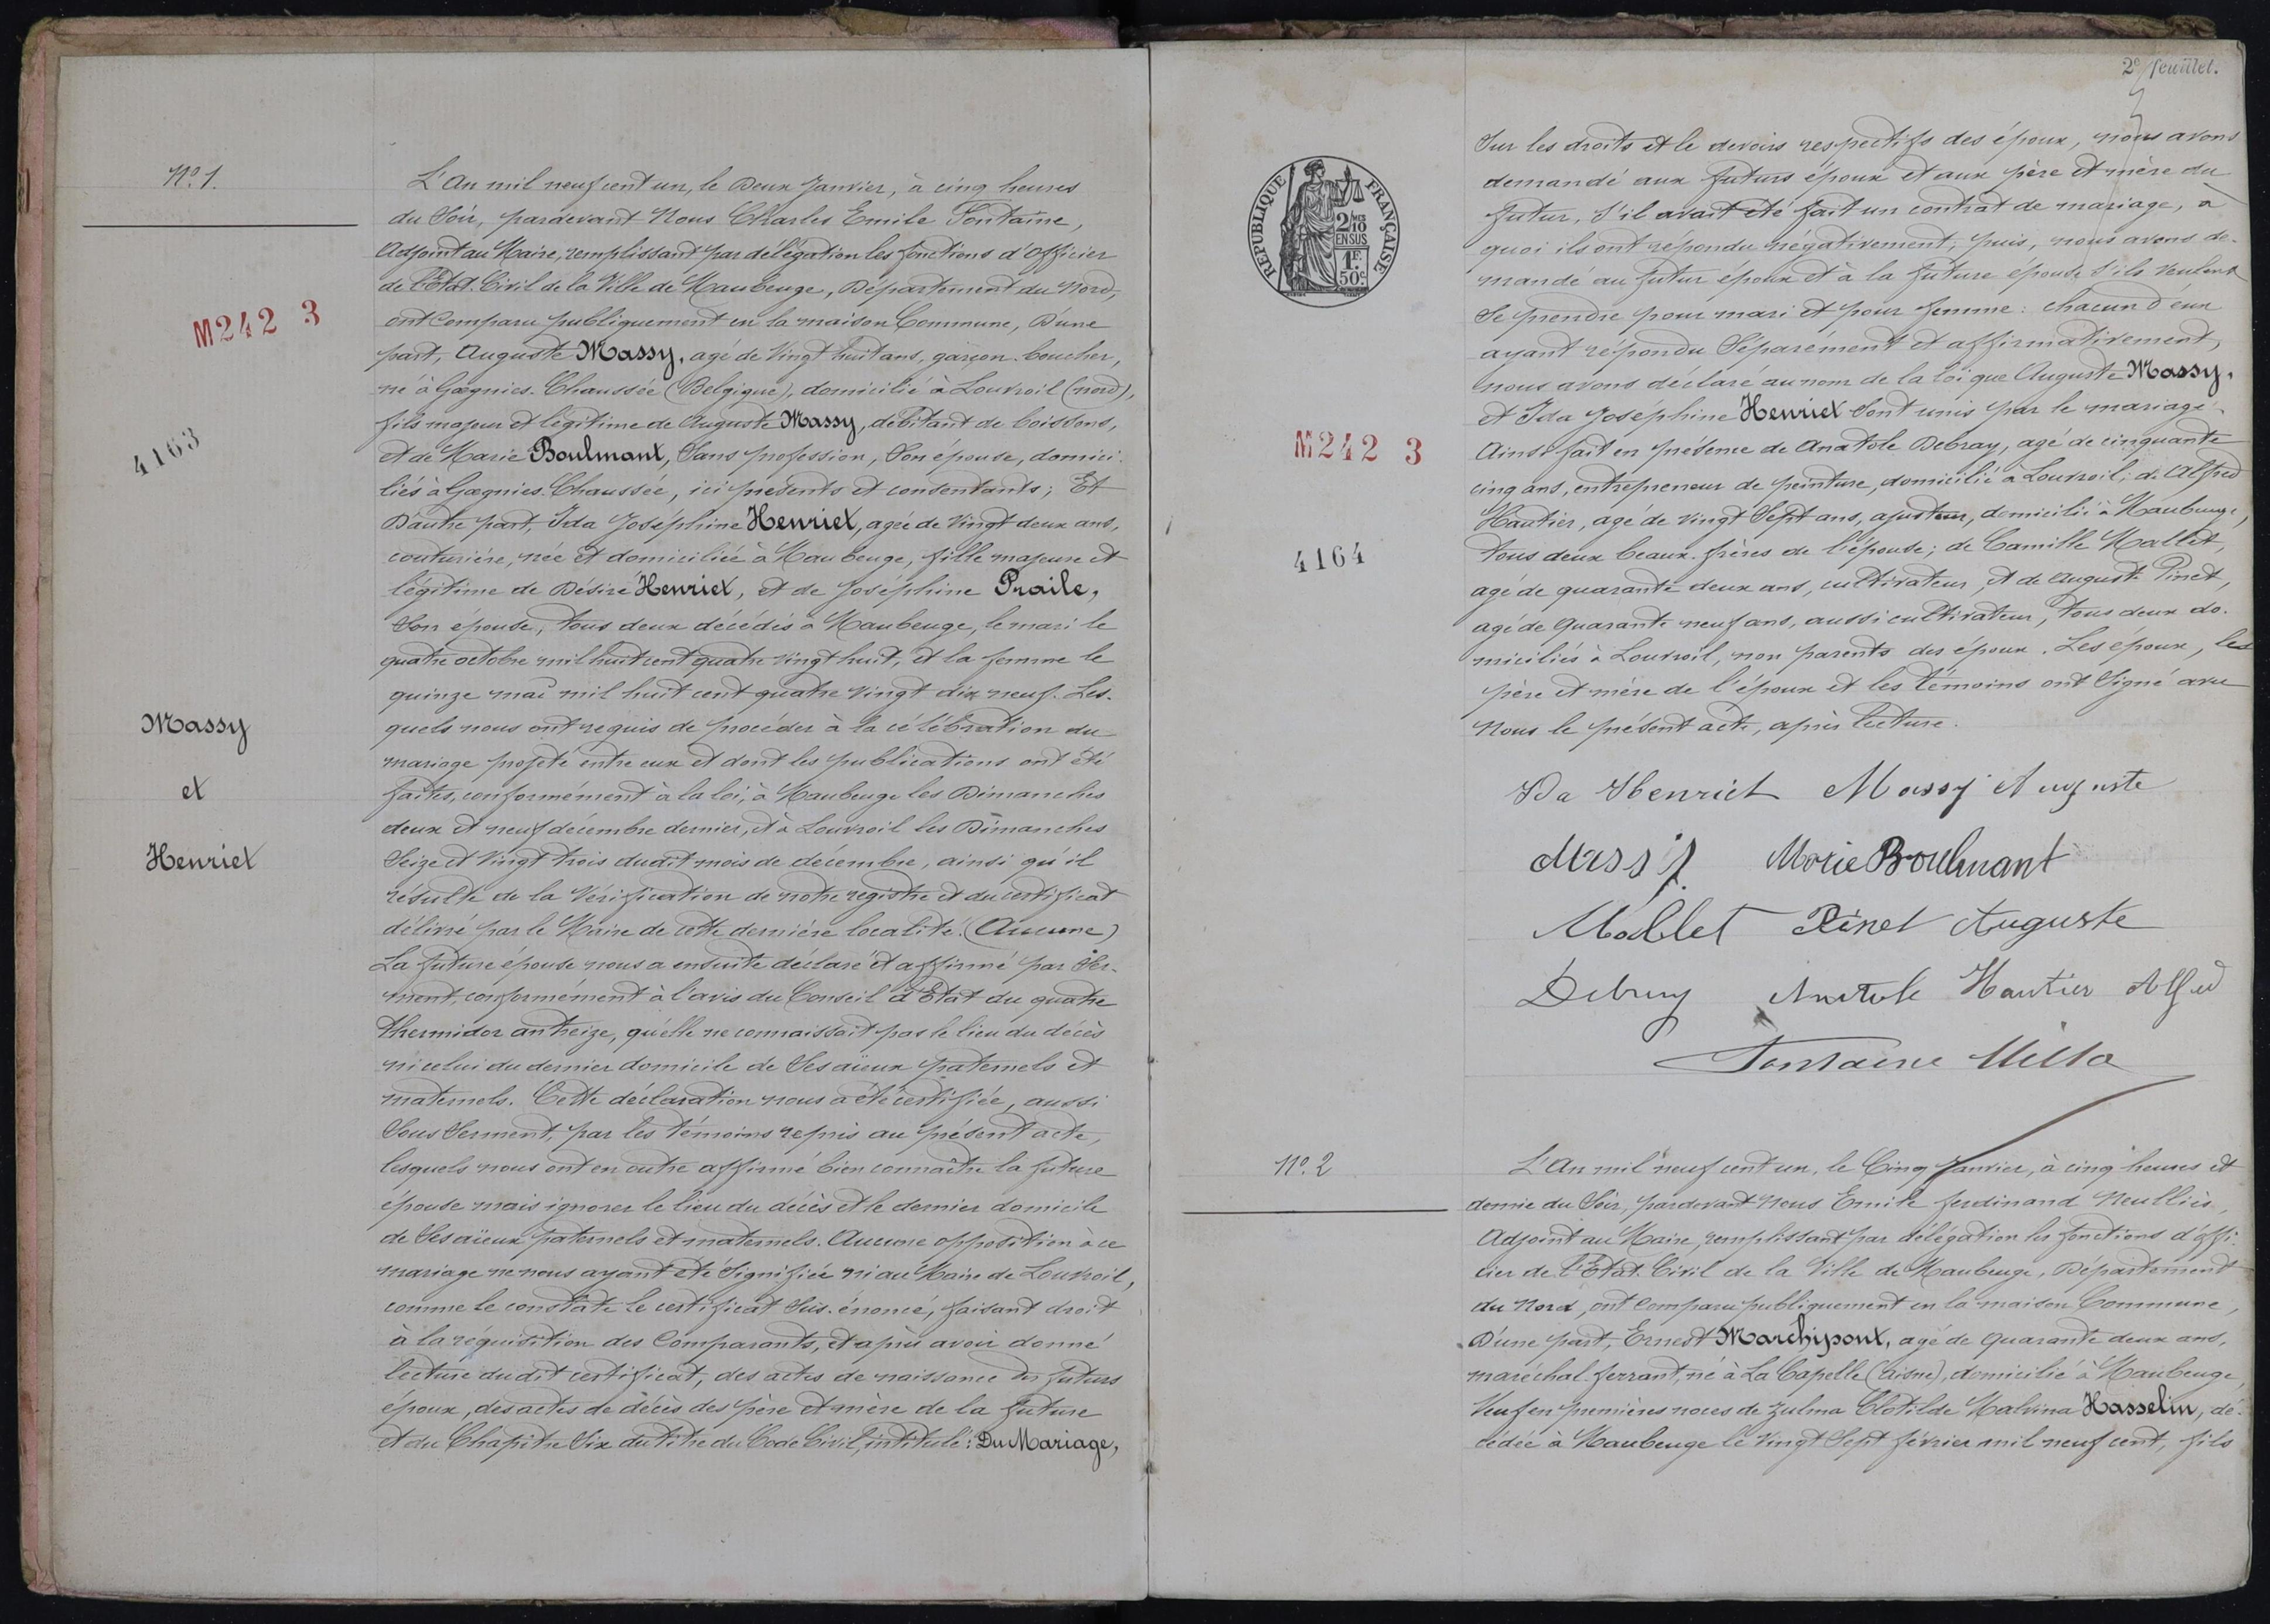 N° 1.
M242 3
4163
Massy
et
Henriet
L'An mil neuf cent un, le Deux Janvier, à cinq heures
du Soir, pardevant Nous Charles Emile Fontaine,
Adjoint au Maire, remplissant par délégation les fonctions d'Officier
de l'Etat-Civil de la Ville de Maubeuge, Département du Nord,
ont Comparu publiquement en la maison Commune, D'une
part, Auguste Massy, agé de Vingt huit ans, garçon-boucher,
né à Gœgnies-Chaussée (Belgique), domicilié à Louvroil (nord),
fils majeur et légitime de Auguste Massy, débitant de boissons,
et de Marie Boulmant, Sans profession, Son épouse, domici-
liés à Gœgnies-Chaussée, ici présents et consentants; Et
D'autre part, Ida Joséphine Henriet, agée de Vingt deux ans,
couturière, née et domiciliée à Maubeuge, fille majeure et
légitime de Désiré Henriet, et de Joséphine Praile,
Son épouse, tous deux décédés à Maubeuge, le mari le
quatre octobre mil huit cent quatre vingt huit, et la femme le
quinze mai mil huit cent quatre vingt dix neuf. Les-
quels nous ont requis de procéder à la célébration du
mariage projeté entre eux et dont les publications ont été
faites, conformément à la loi, à Maubeuge les Dimanches
deux et neuf décembre dernier, et à Louvroil les Dimanches
Seize et Vingt trois dudit mois de décembre, ainsi qu'il
résulte de la Vérification de notre registre et du certificat
délivré par le Maire de cette dernière localité. (Aucune)
La future épouse nous a ensuite déclaré et affirmé par Ser-
ment, conformément à l'avis du Conseil d'Etat du quatre
thermidor an treize, qu'elle ne connaissait pas le lieu du décès
ni celui du dernier domicile de Ses aïeux paternels et
maternels. Cette déclaration nous a été certifiée, aussi
Sous Serment, par les témoins repris au présent acte,
lesquels nous ont en outre affirmé bien connaître la future
épouse mais ignorer le lieu du décès et le dernier domicile
de Ses aïeux paternels et maternels. Aucune opposition à ce
mariage ne nous ayant été Signifiée ni au Maire de Louvroil,
comme le constate le certificat Sus-énoncé, faisant droit
à la réquisition des Comparants, et après avoir donné
lecture dudit certificat, des actes de naissance des futurs
époux, des actes de décès des père et mère de la future
et du Chapitre Six du titre du Code Civil, intitulé: Du Mariage,
2e feuillet.
RÉPUBLIQUE FRANÇAISE
2/10 MES
EN SUS
1F.
50c.
M242 3
4164
Sur les droits et le devoirs respectifs des époux, nous avons
demandé aux futurs époux et aux père et mère du
futur, S'il avait été fait un contrat de mariage, à
quoi ils ont répondu négativement; puis, nous avons de-
mandé au futur époux et à la future épouse S'ils veulent
Se prendre pour mari et pour femme: chacun d'eux
ayant répondu Séparément et affirmativement,
nous avons déclaré au nom de la loi que Auguste Massy,
et Ida Joséphine Henriet Sont unis par le mariage.
Ainsi fait en présence de Anatole Debray, agé de cinquante
cinq ans, entrepreneur de peinture, domicilié à Louvroil; de Alfred
Hautier, agé de vingt Sept ans, ajusteur, domicilié à Maubeuge,
tous deux beaux-frères de l'épouse; de Camille Mallet,
agé de quarante deux ans, cultivateur, et de Auguste Pinet,
agé de quarante neuf ans, aussi cultivateur, tous deux do-
miciliés à Louvroil, non parents des époux. Les époux, les
père et mère de l'époux et les témoins ont Signé avec
Nous le présent acte, après lecture.
Ida Henriet Massy Auguste
Massy Marie Boulmant
Mallet Pinet Auguste
Debray Anatole Hautier Alfred
Fontaine
N° 2
L'An mil neuf cent un, le Cinq Janvier, à cinq heures et
demie du Soir, pardevant Nous Emile ferdinand Neulliès,
Adjoint au Maire, remplissant par délégation les fonctions d'Offi-
cier de l'Etat-Civil de la Ville de Maubeuge, Département
du Nord, ont Comparu publiquement en la maison Commune,
D'une part, Ernest Marchipont, agé de quarante deux ans,
maréchal-ferrant, né à La Capelle (aisne), domicilié à Maubeuge,
Veuf en premières noces de Zulma Clotilde Malvina Hasselin, dé-
cédée à Maubeuge le Vingt Sept février mil neuf cent, fils